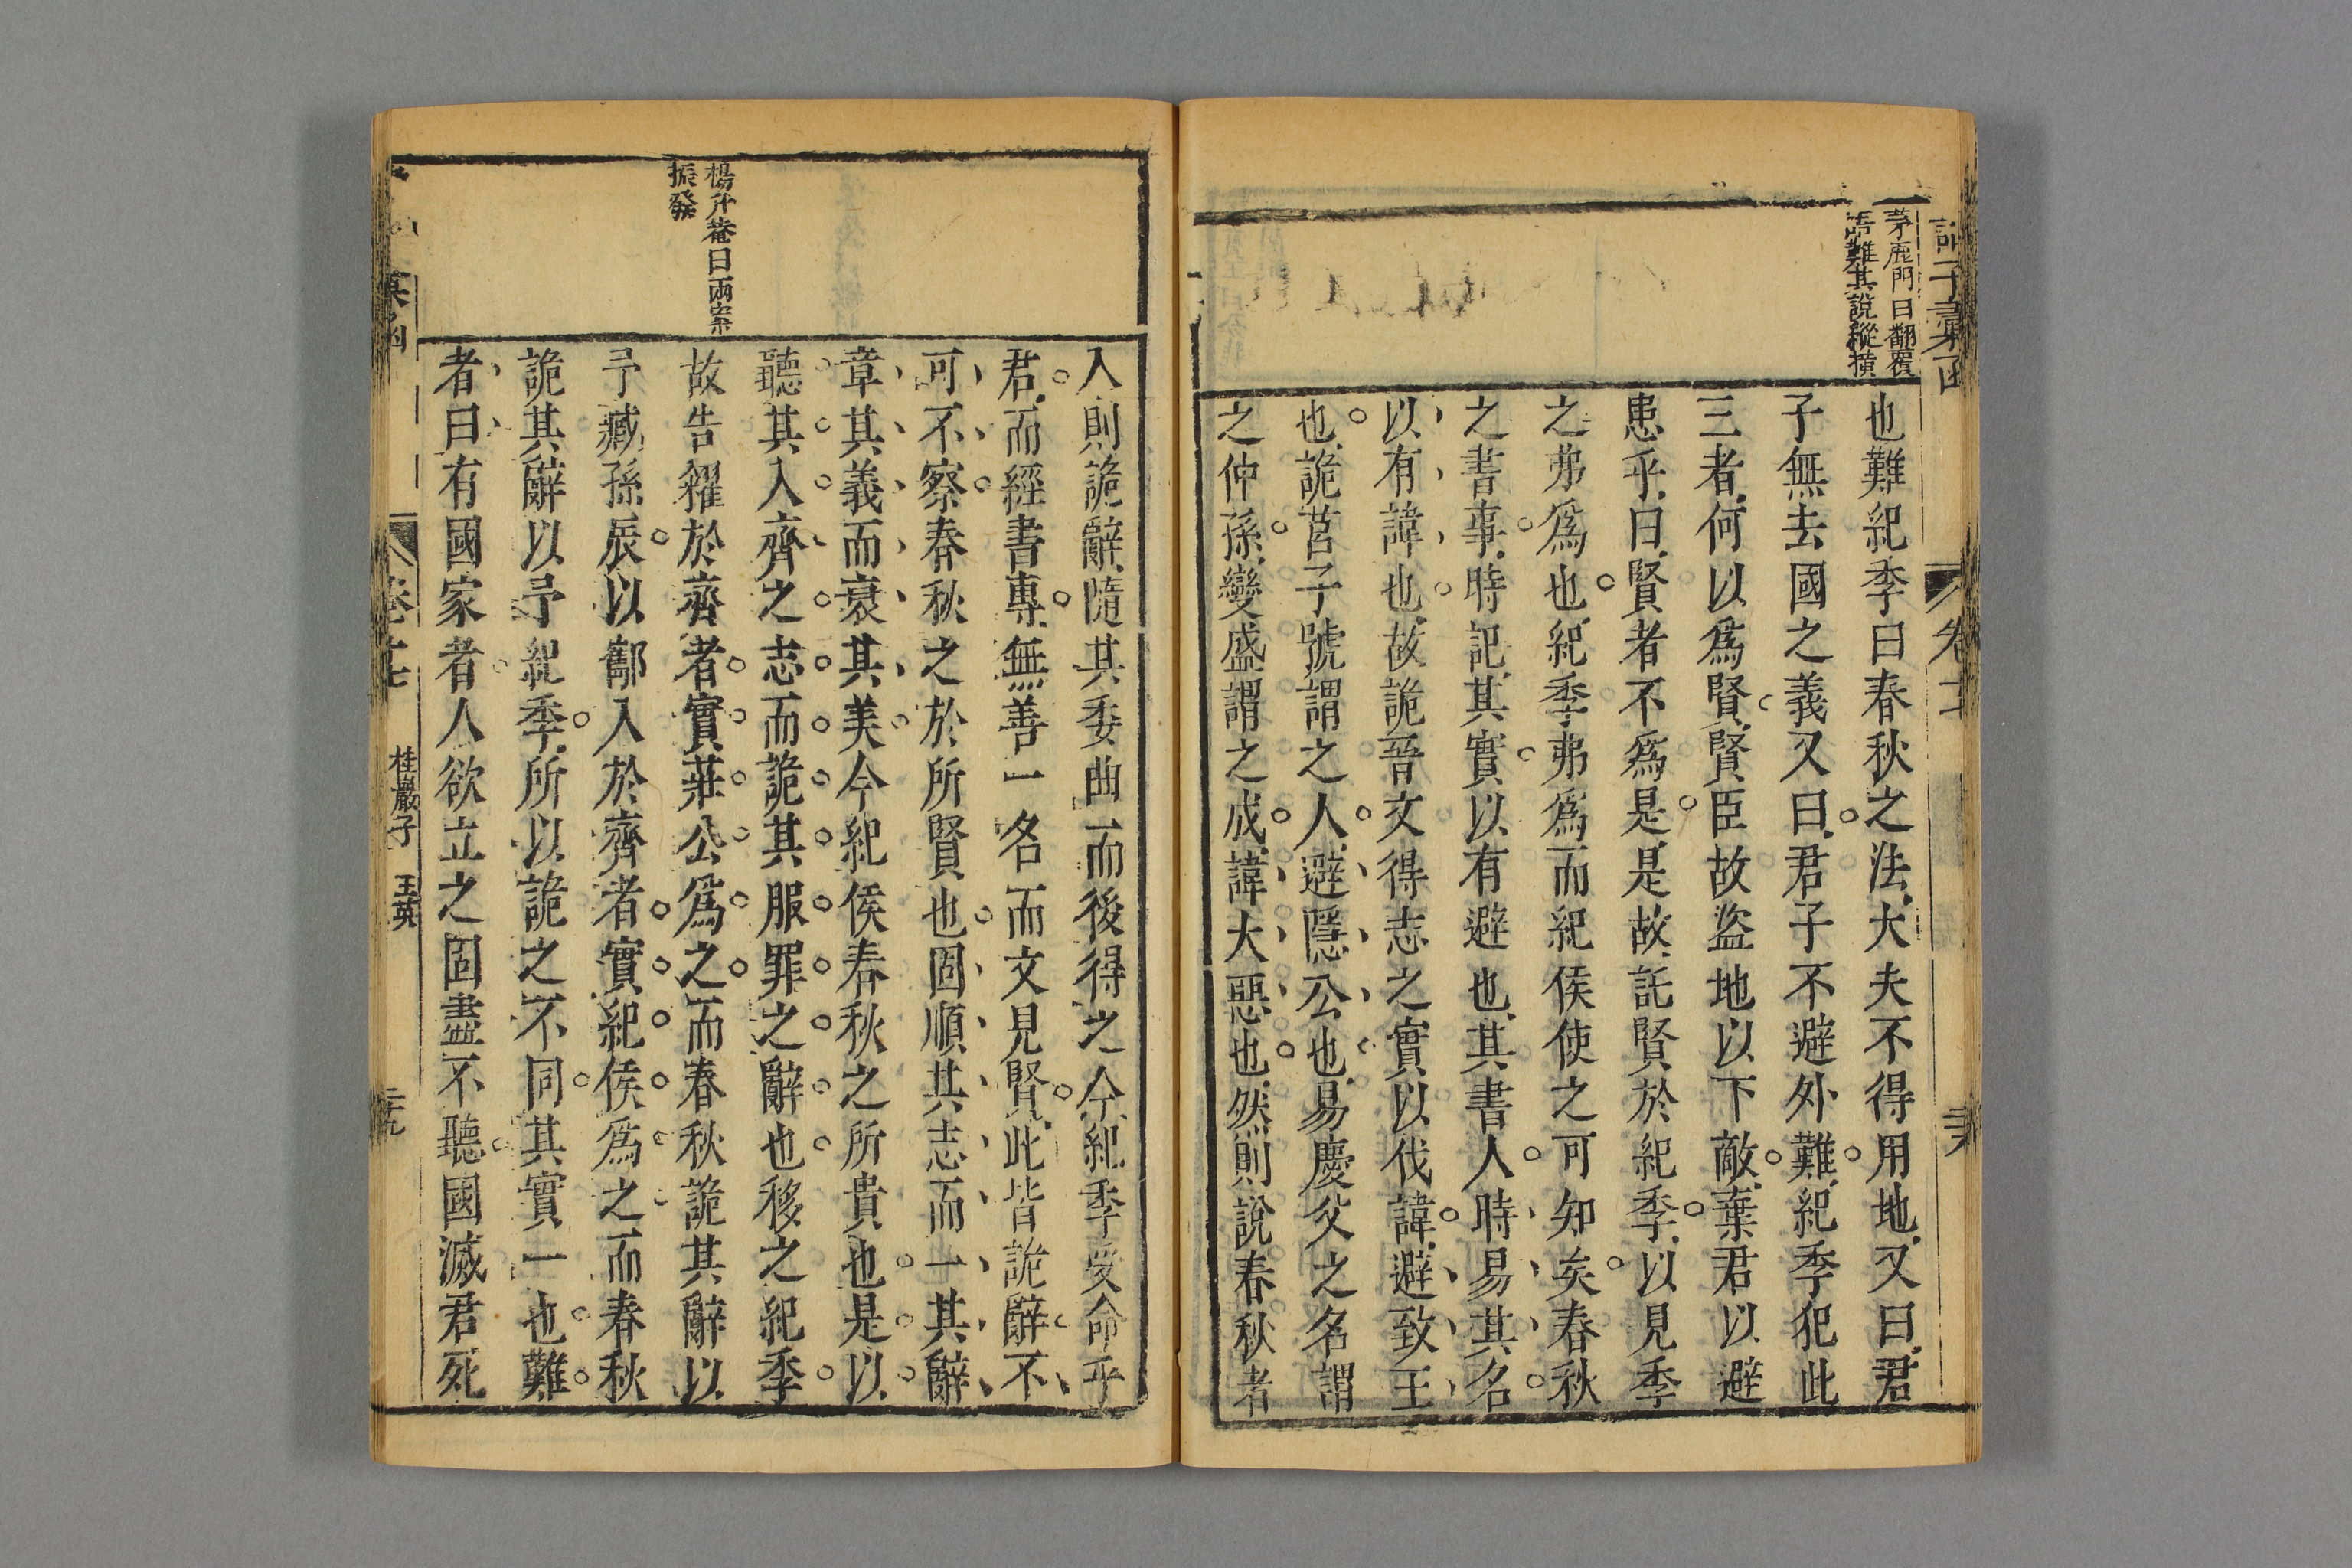 茅鹿門曰翻覆
語難其說縱橫
也難紀季曰春秋之法大夫不得用地又曰君
子無去國之義又曰君子不避外難紀季犯此
三者何以爲賢賢臣故盜地以下敵棄君以避
患乎曰賢者不爲是是故託賢於紀季以見季
之弟爲也紀季弟爲而紀侯使之可知矣春秋
之書事時記其實以有避也其書人時易其名
以有諱也故詭晉文得志之實以伐諱避致王
也詭莒子號謂之人避隱公也易慶父之名謂
之仲孫變盛謂之成諱大惡也然則說春秋者
楊升菴曰兩案
振發
入則詭辭隨其委曲而後得之今紀季受命乎
君而經書專無善一名而文見賢此皆詭辭不
可不察春秋之於所賢也固順其志而一其辭
章其義而裒其美今紀侯春秋之所貴也是以
聽其入齊之志而詭其服罪之辭也移之紀季
故告糴於齊者實莊公爲之而春秋詭其辭以
予臧孫辰以酅入於齊者實紀侯爲之而春秋
詭其辭以予紀季所以詭之不同其實一也難
者曰有國家者人欲立之固盡不聽國滅君死
卷十七
桂巖子
玉英
二十九